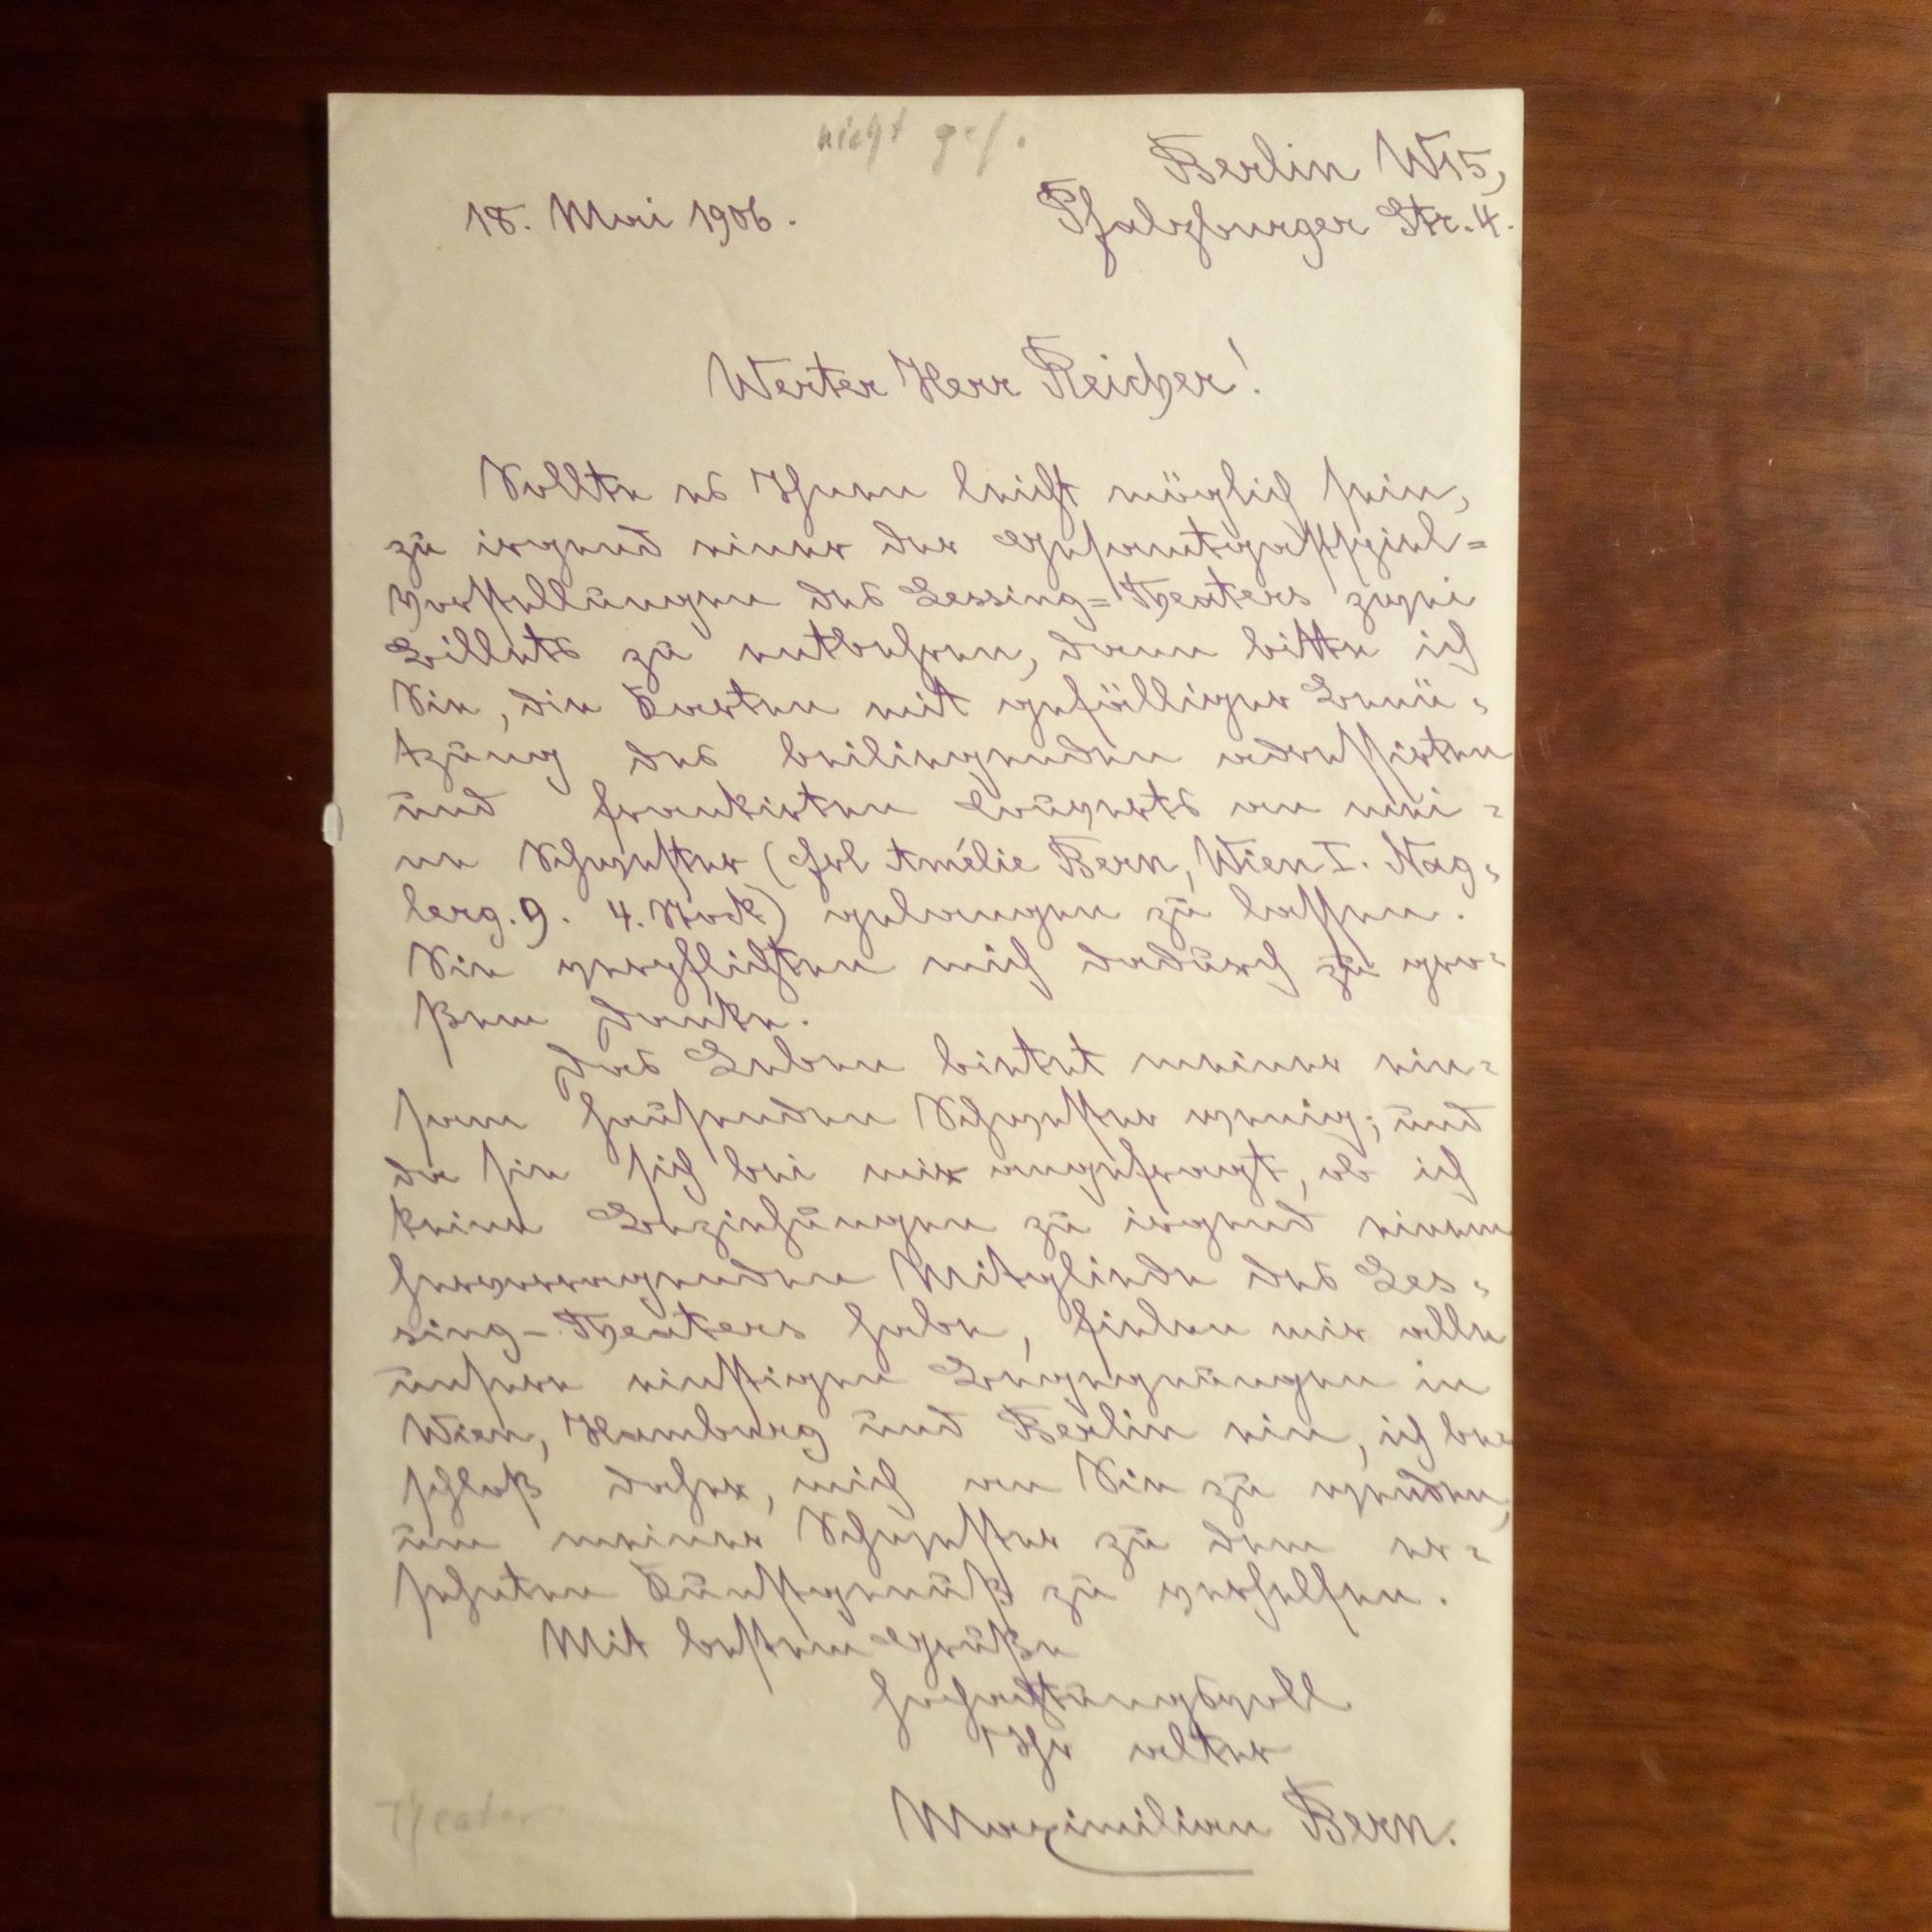 nicht gef.
Berlin W15,
18. Mai 1906.
Pfalzburger Str. 4.
Werter Herr Reicher!
Sollte es Ihnen leicht möglich sein,
zu irgend einer der Gesamtgastspiel=
vorstellungen des Lessing=Theaters zwei
Billets zu entbehren, dann bitte ich
Sie, die Karten mit gefälliger Benü=
tzung des beiliegenden adressirten
und frankirten Couverts an mei=
ne Schwester (Frl Amélie Bern, Wien I. Nag=
lerg. 9. 4. Stock) gelangen zu lassen.
Sie verpflichten mich dadurch zu gro=
ßem Danke.
Das Leben bietet meiner ein=
sam hausenden Schwester wenig; und
da sie sich bei mir angefragt, ob ich
keine Beziehungen zu irgend einem
hervorragenden Mitgliede des Les=
sing-Theaters habe, fielen mir alle
unsere einstigen Begegnungen in
Wien, Hamburg und Berlin ein, ich be=
schloß daher, mich an Sie zu wenden,
um meiner Schwester zu dem er=
sehnten Kunstgenuß zu verhelfen.
Mit bestem Gruße
hochachtungsvoll
Ihr alter
Maximilian Bern.
Theater